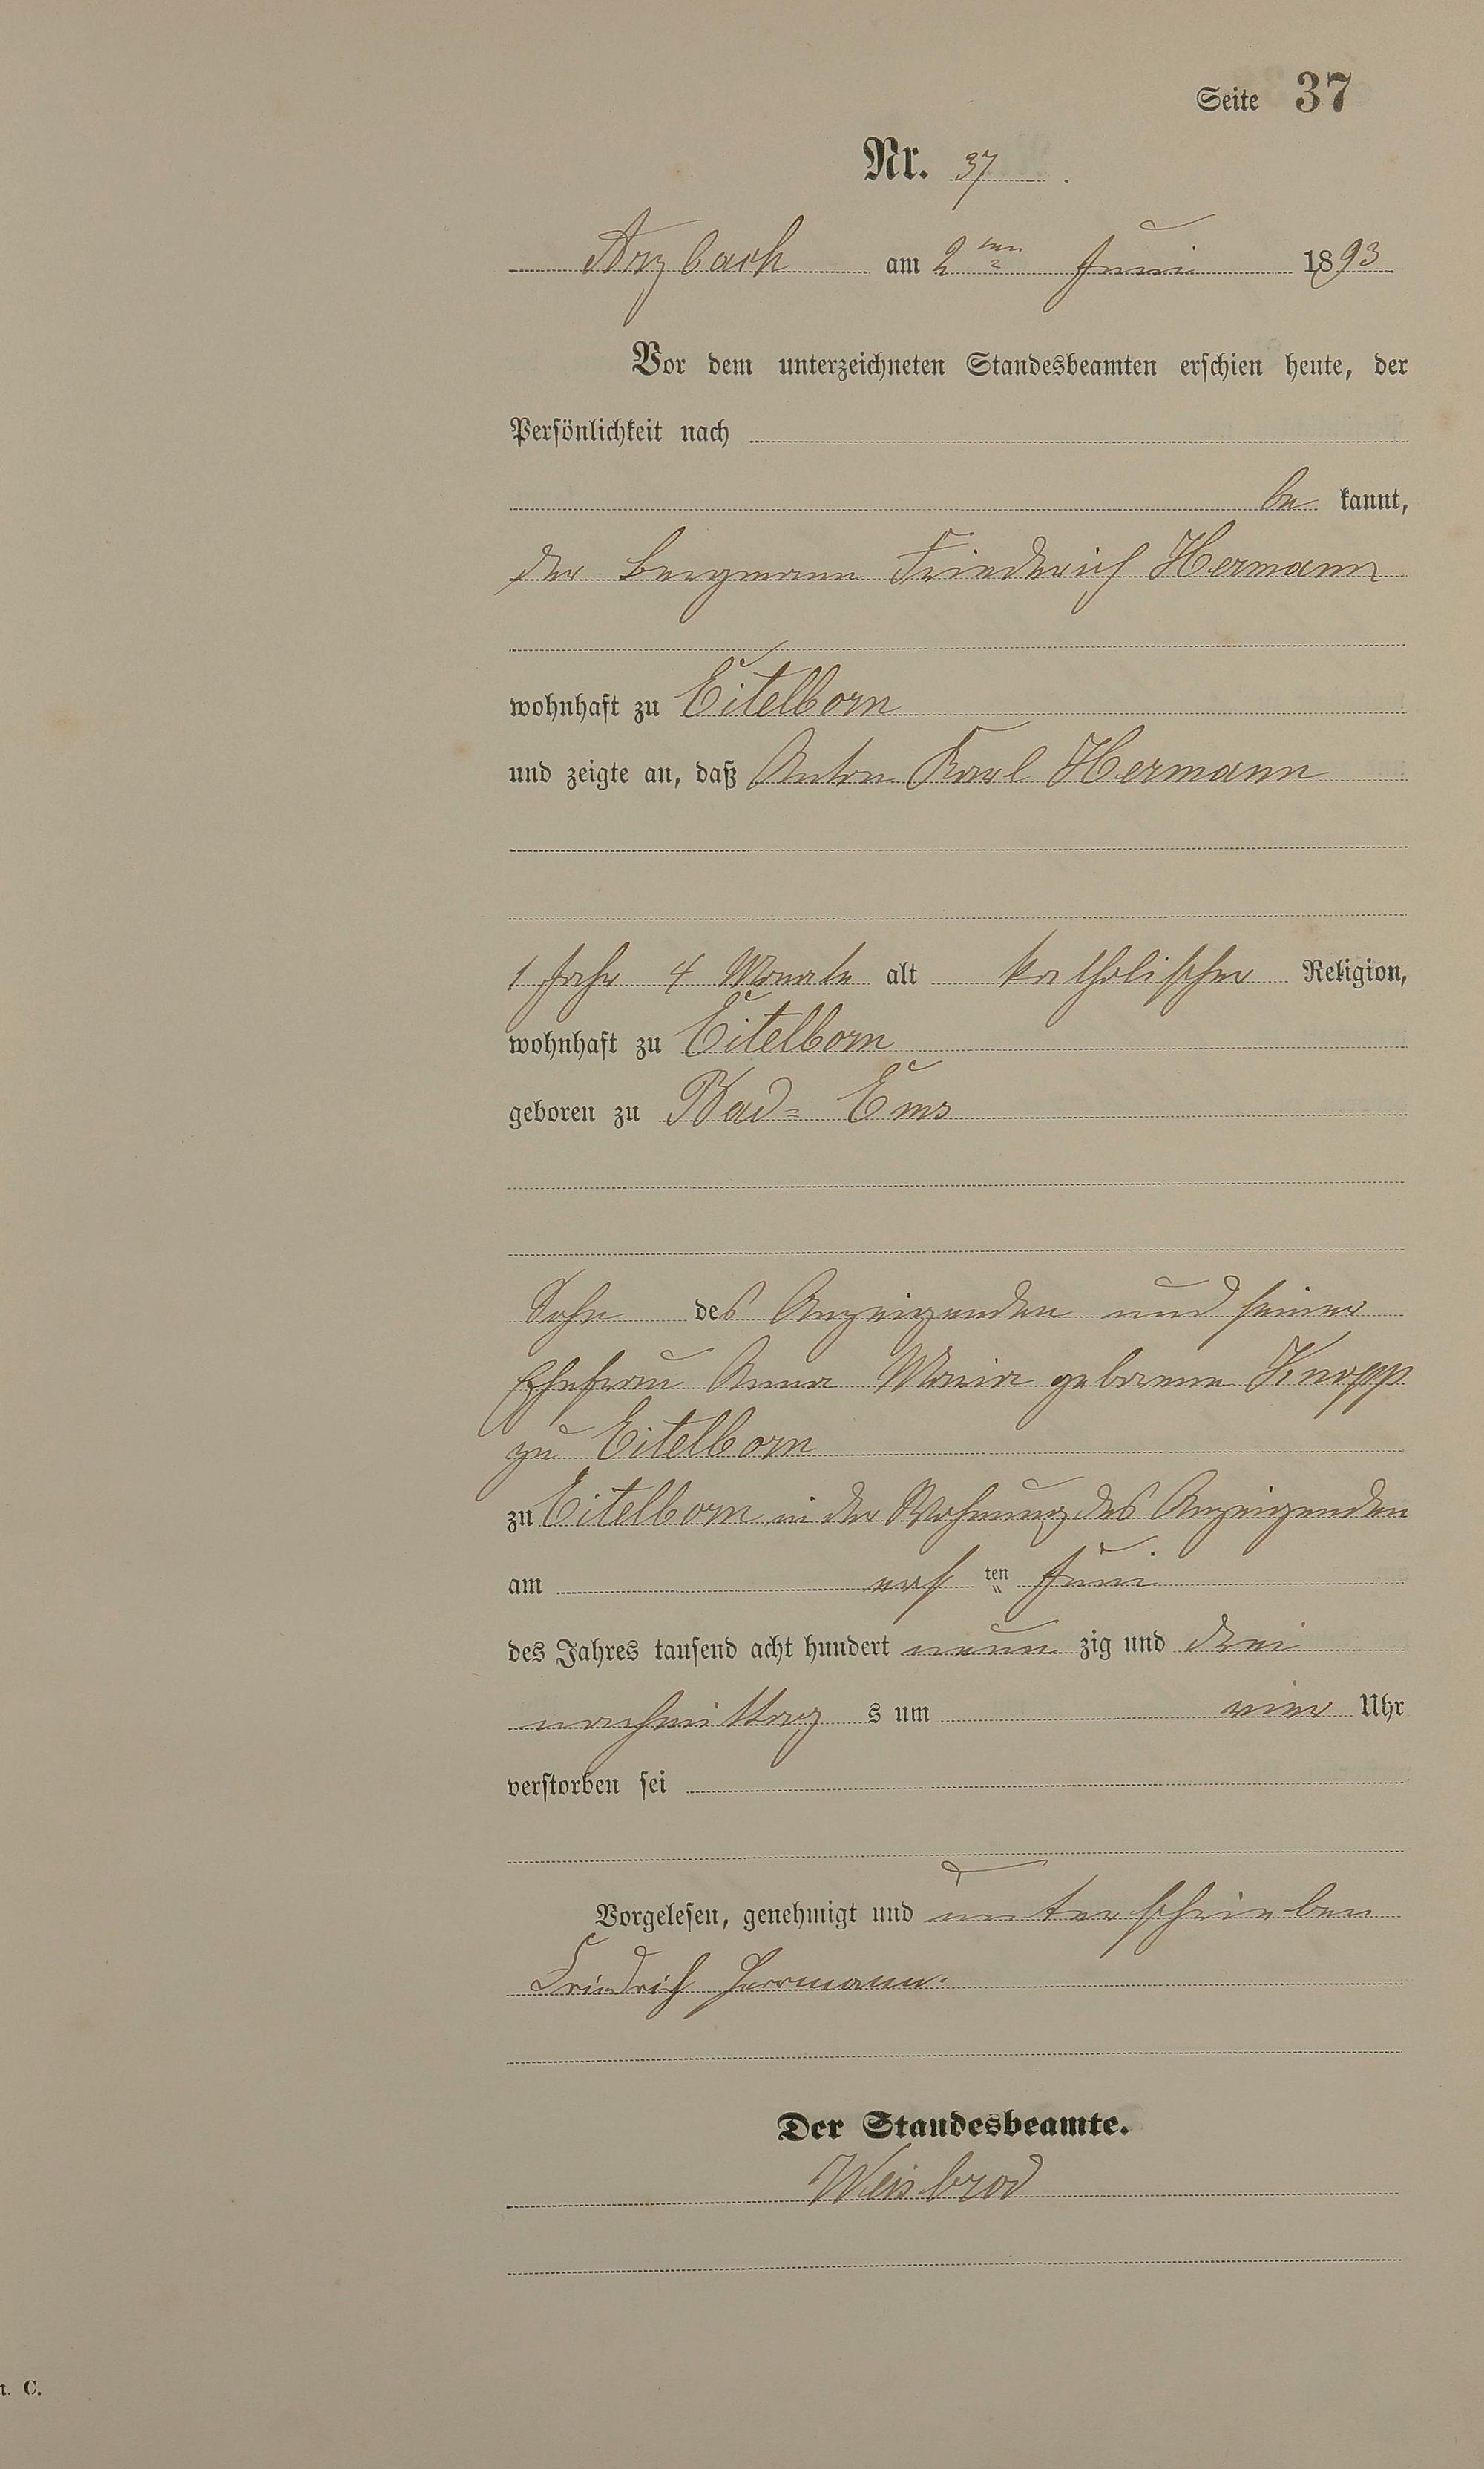 Seite 37
Nr. 37.
Arzbach am 2ten Juni 1893
Vor dem unterzeichneten Standesbeamten erschien heute, der
Persönlichkeit nach
be kannt,
der Bergmann Friederich Hermann
wohnhaft zu Eitelborn
und zeigte an, daß Anton Karl Hermann
1 Jahr 4 Monate alt katholischer Religion,
wohnhaft zu Eitelborn
geboren zu Bad-Ems
Sohn des Anzeigenden und seiner
Ehefrau Anna Maria geborene Knopp
zu Eitelborn
zu Eitelborn in der Wohnung des Anzeigenden
am ersten Juni
des Jahres tausend acht hundert neun zig und drei
nachmittag s um vier Uhr
verstorben sei
Vorgelesen, genehmigt und unterschrieben
Friedrich Herrmann.
Der Standesbeamte.
Weisbrod
C.